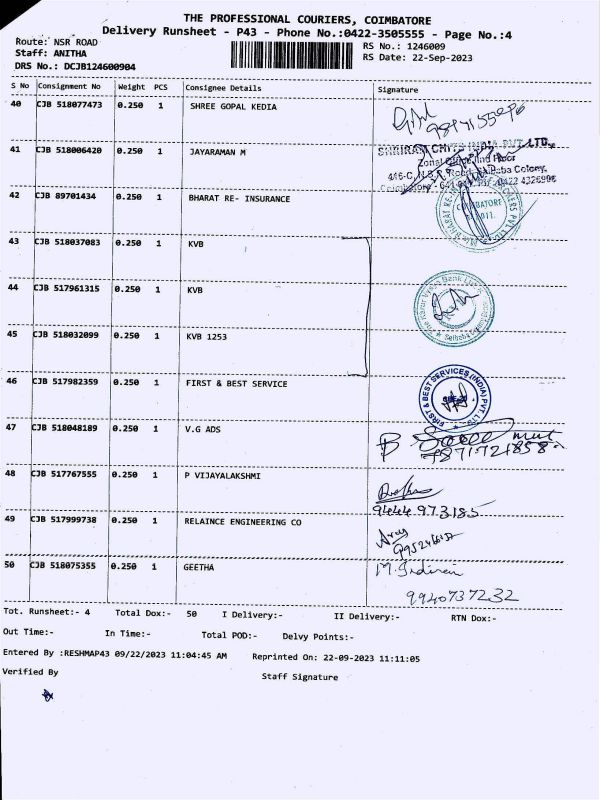 THE PROFESSIONAL COURIERS, COIMBATORE
Delivery Runsheet - P43 - Phone No.:0422-3505555 - Page No.:4
Route: NSR ROAD
RS No.: 1246009
Staff: ANITHA
RS Date: 22-Sep-2023
DRS No.: DCJB124600904
S No Consignment No Weight PCS Consignee Details Signature
40 CJB 518077473 0.250 1 SHREE GOPAL KEDIA
41 CJB 518006420 0.250 1 JAYARAMAN M
SHRIRAM CHITS INDIA PVT. LTD.,
Zonal Floor
Baba Colony,
Coimbatore - 0422 4326996
42 CJB 89701434 0.250 1 BHARAT RE- INSURANCE
COIMBATORE
43 CJB 518037083 0.250 1 KVB
44 CJB 517961315 0.250 1 KVB
45 CJB 518032099 0.250 1 KVB 1253
46 CJB 517982359 0.250 1 FIRST & BEST SERVICE
FIRST & BEST SERVICES (INDIA) PVT. LTD.
47 CJB 518048189 0.250 1 V.G ADS
7871721858
48 CJB 517767555 0.250 1 P VIJAYALAKSHMI
9444 973185
49 CJB 517999738 0.250 1 RELAINCE ENGINEERING CO
50 CJB 518075355 0.250 1 GEETHA
9940737232
Tot. Runsheet:- 4 Total Dox:- 50 I Delivery:- II Delivery:- RTN Dox:-
Out Time:- In Time:- Total POD:- Delvy Points:-
Entered By :RESHMAP43 09/22/2023 11:04:45 AM Reprinted On: 22-09-2023 11:11:05
Verified By Staff Signature